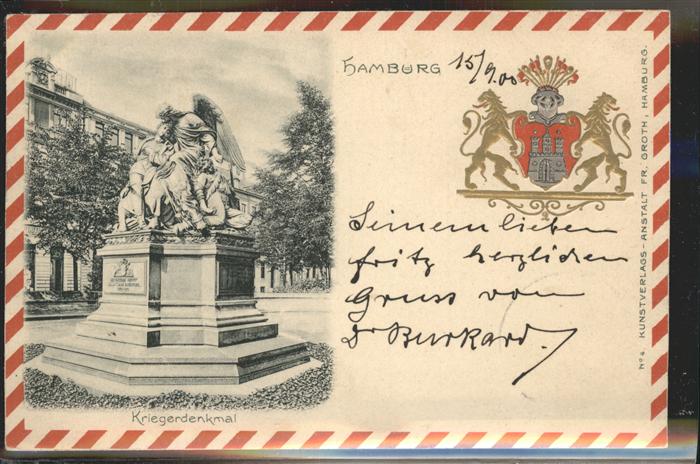 HAMBURG 15/9.00
Seinem lieben
fritz herzlichen
Gruss von
Dr Burkard.
Kriegerdenkmal
No 4 KUNSTVERLAGS-ANSTALT FR. GROTH, HAMBURG.